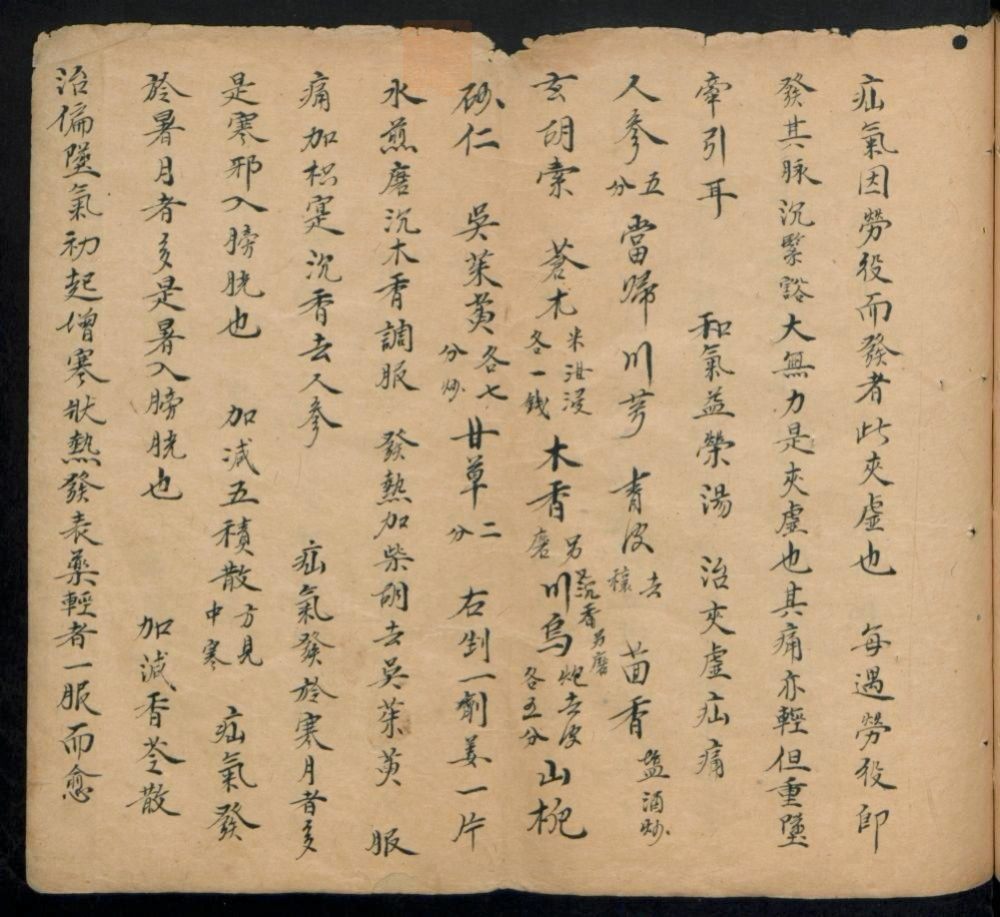 疝氣因勞役而發者此夾虛也　每遇勞役即
發其脉沉緊豁大無力是夾虛也其痛亦輕但重墜
牽引耳　和氣益榮湯　治夾虛疝痛
人參五分當歸川芎　青皮去穰　茴香塩酒炒
玄胡索　蒼朮米泔浸各一錢木香另磨沉香另磨川烏炮去皮各五分山梔
砂仁　吳茱萸各七分炒甘草二分　右剉一劑姜一片
水煎磨沉木香調服　發熱加柴胡去吳茱萸　服
痛加枳寔沉香去人參　疝氣發於寒月者多
是寒邪入膀胱也　加減五積散方見中寒　疝氣發
於暑月者多是暑入膀胱也　加減香苓散
治偏墜氣初起增寒狀熱發表藥輕者一服而愈